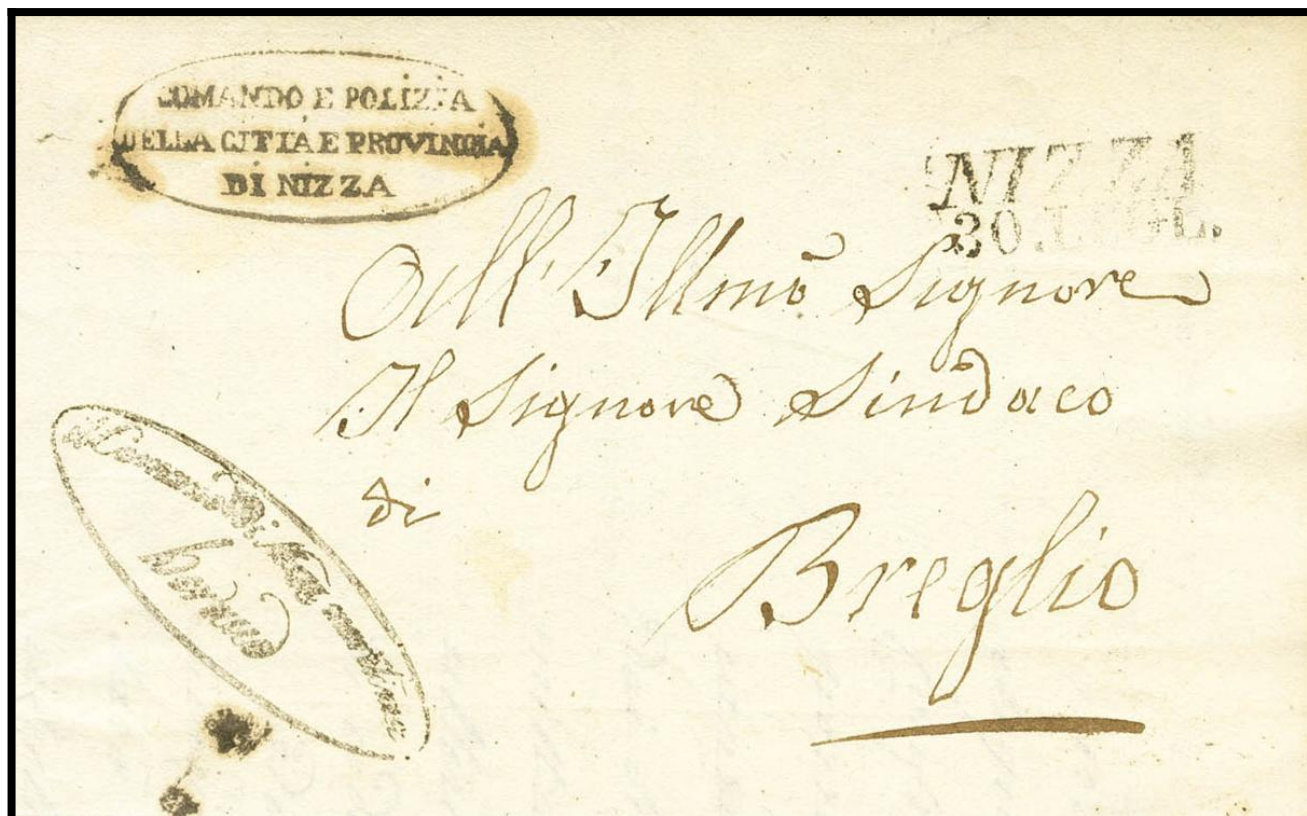 COMANDO E POLIZIA
DELLA CITTÀ E PROVINCIA
DI NIZZA
NIZZA
30. LUGL.
All' Illmõ Signore
Il Signore Sindaco
di
Breglio